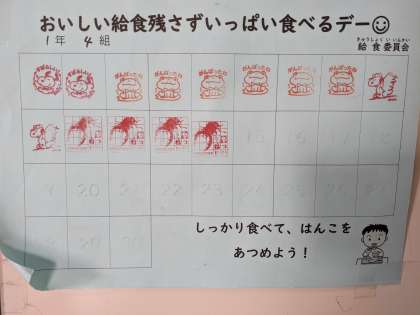 おいしい給食残さずいっぱい食べるデー
1年 4組
きゅうしょくいいんかい
給食委員会
がんばったね がんばったね がんばったね がんばったね がんばったね がんばったね
15 16 17 18
19 20 21 22 23 24 25 26 27
28 29 30
しっかり食べて、はんこを
あつめよう！